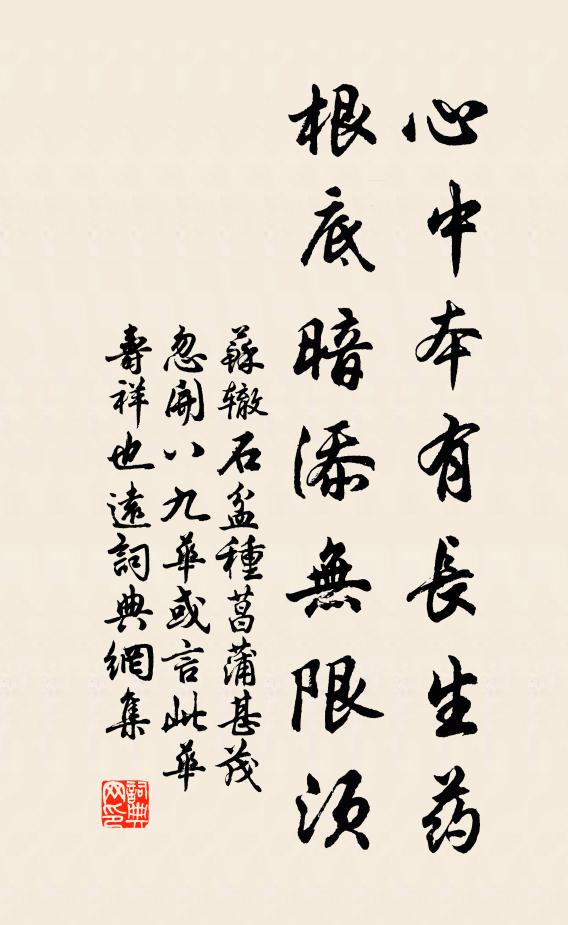 心中本有長生药
根底暗添無限須
蘇辙石盆種菖蒲甚茂
忽開八九華或言此華
壽祥也遠詞典網集
詞典
网印